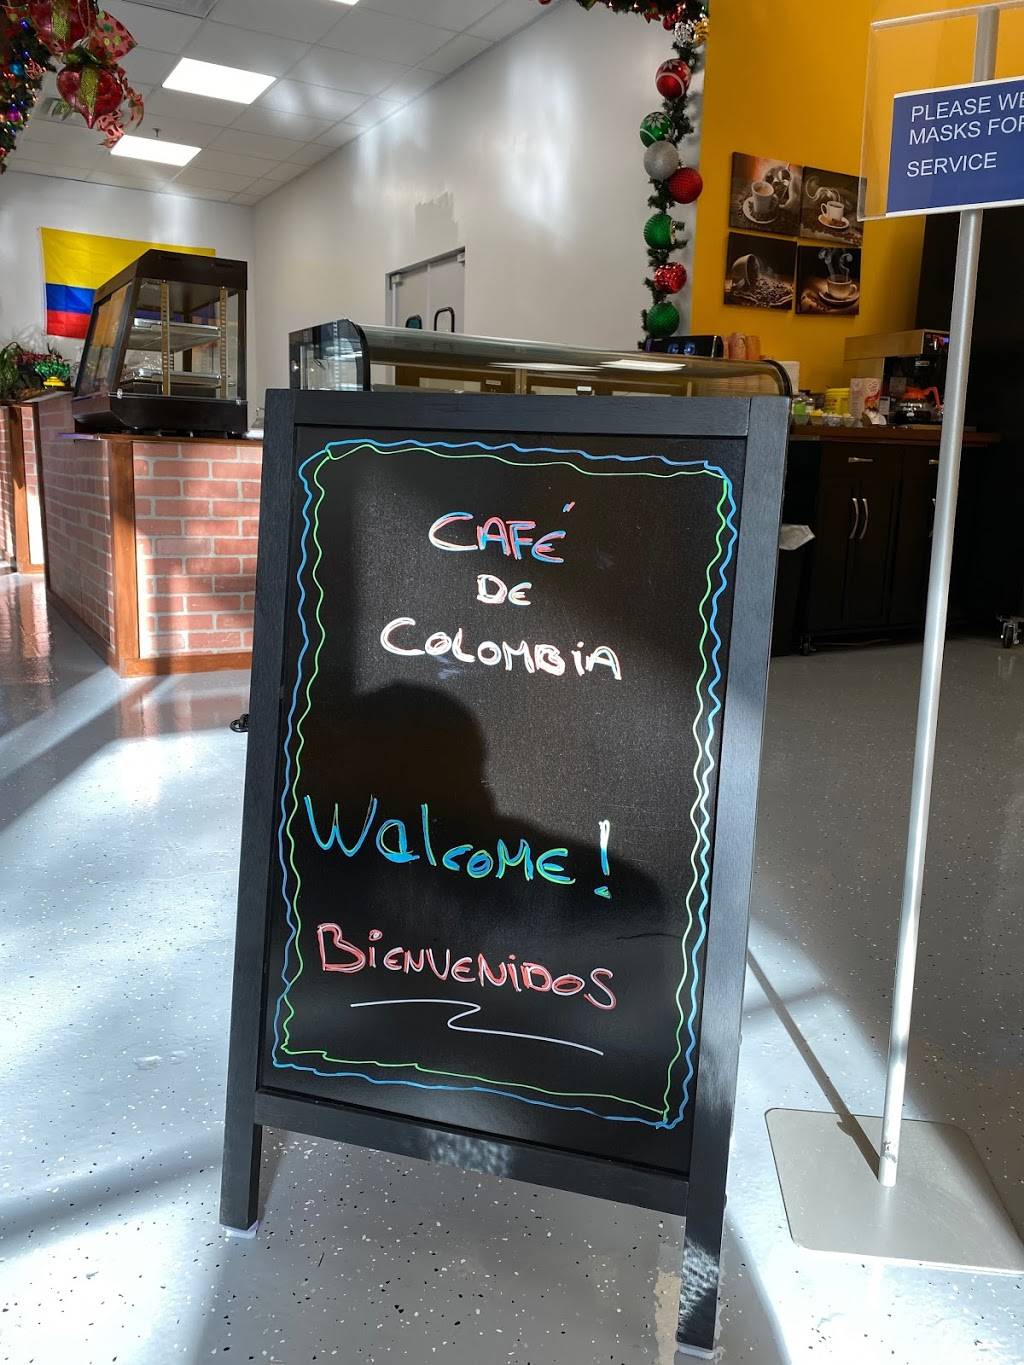 PLEASE WE
MASKS FOR
SERVICE
CAFÉ
DE
COLOMBiA
Walcome!
BiENVENiDOS